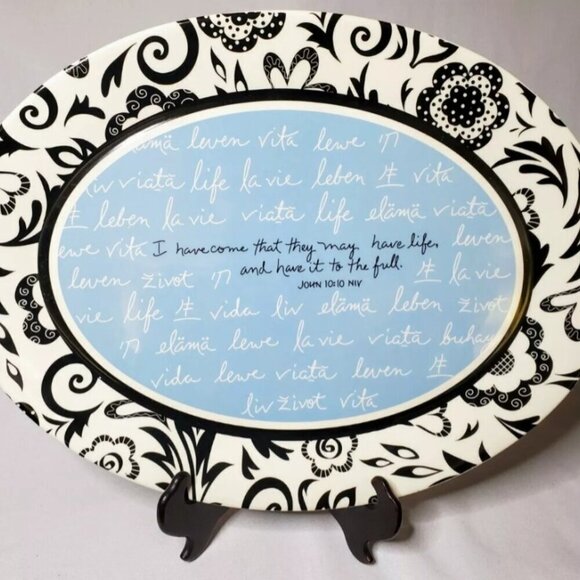 elämä leven vita lewe חי
liv viaţă life la vie leben 生 vita
生 leben la vie viaţă life elämä viaţă
lewe vita I have come that they may have life, leven
and have it to the full.
leven život חי JOHN 10:10 NIV 生 la vie
vie life 生 vida liv elämä leben
חי elämä lewe la vie viaţă buhay
vida lewe viaţă leven 生
liv život vita